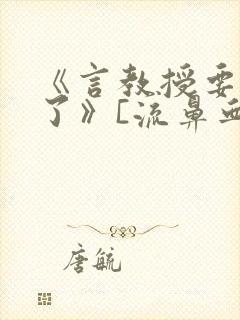 《言教授要
了》[流鼻血
唐毓